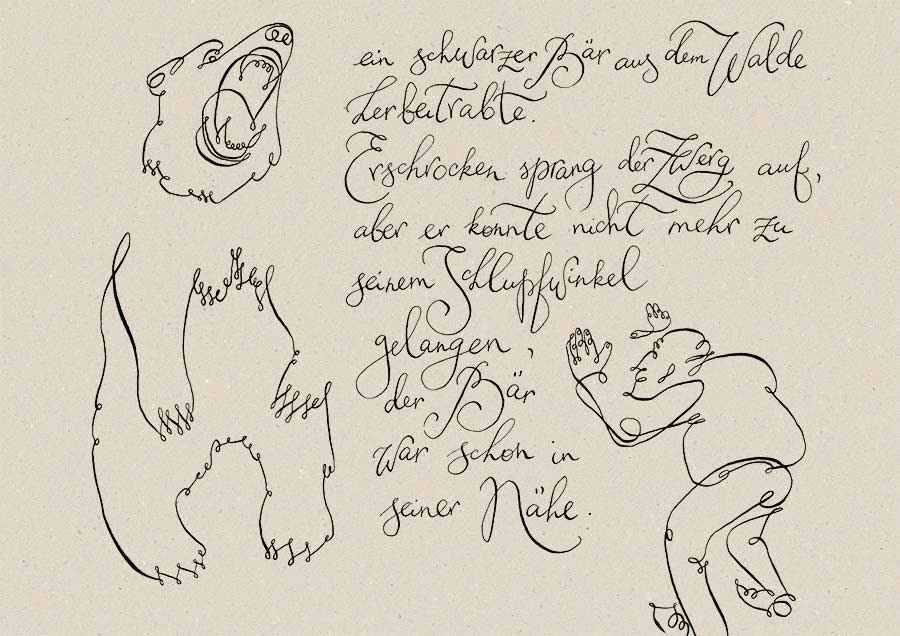 ein schwarzer Bär aus dem Walde
herbeitrabte.
Erschrocken sprang der Zwerg auf,
aber er konnte nicht mehr zu
seinem Schlupfwinkel
gelangen,
der Bär
war schon in
seiner Nähe.